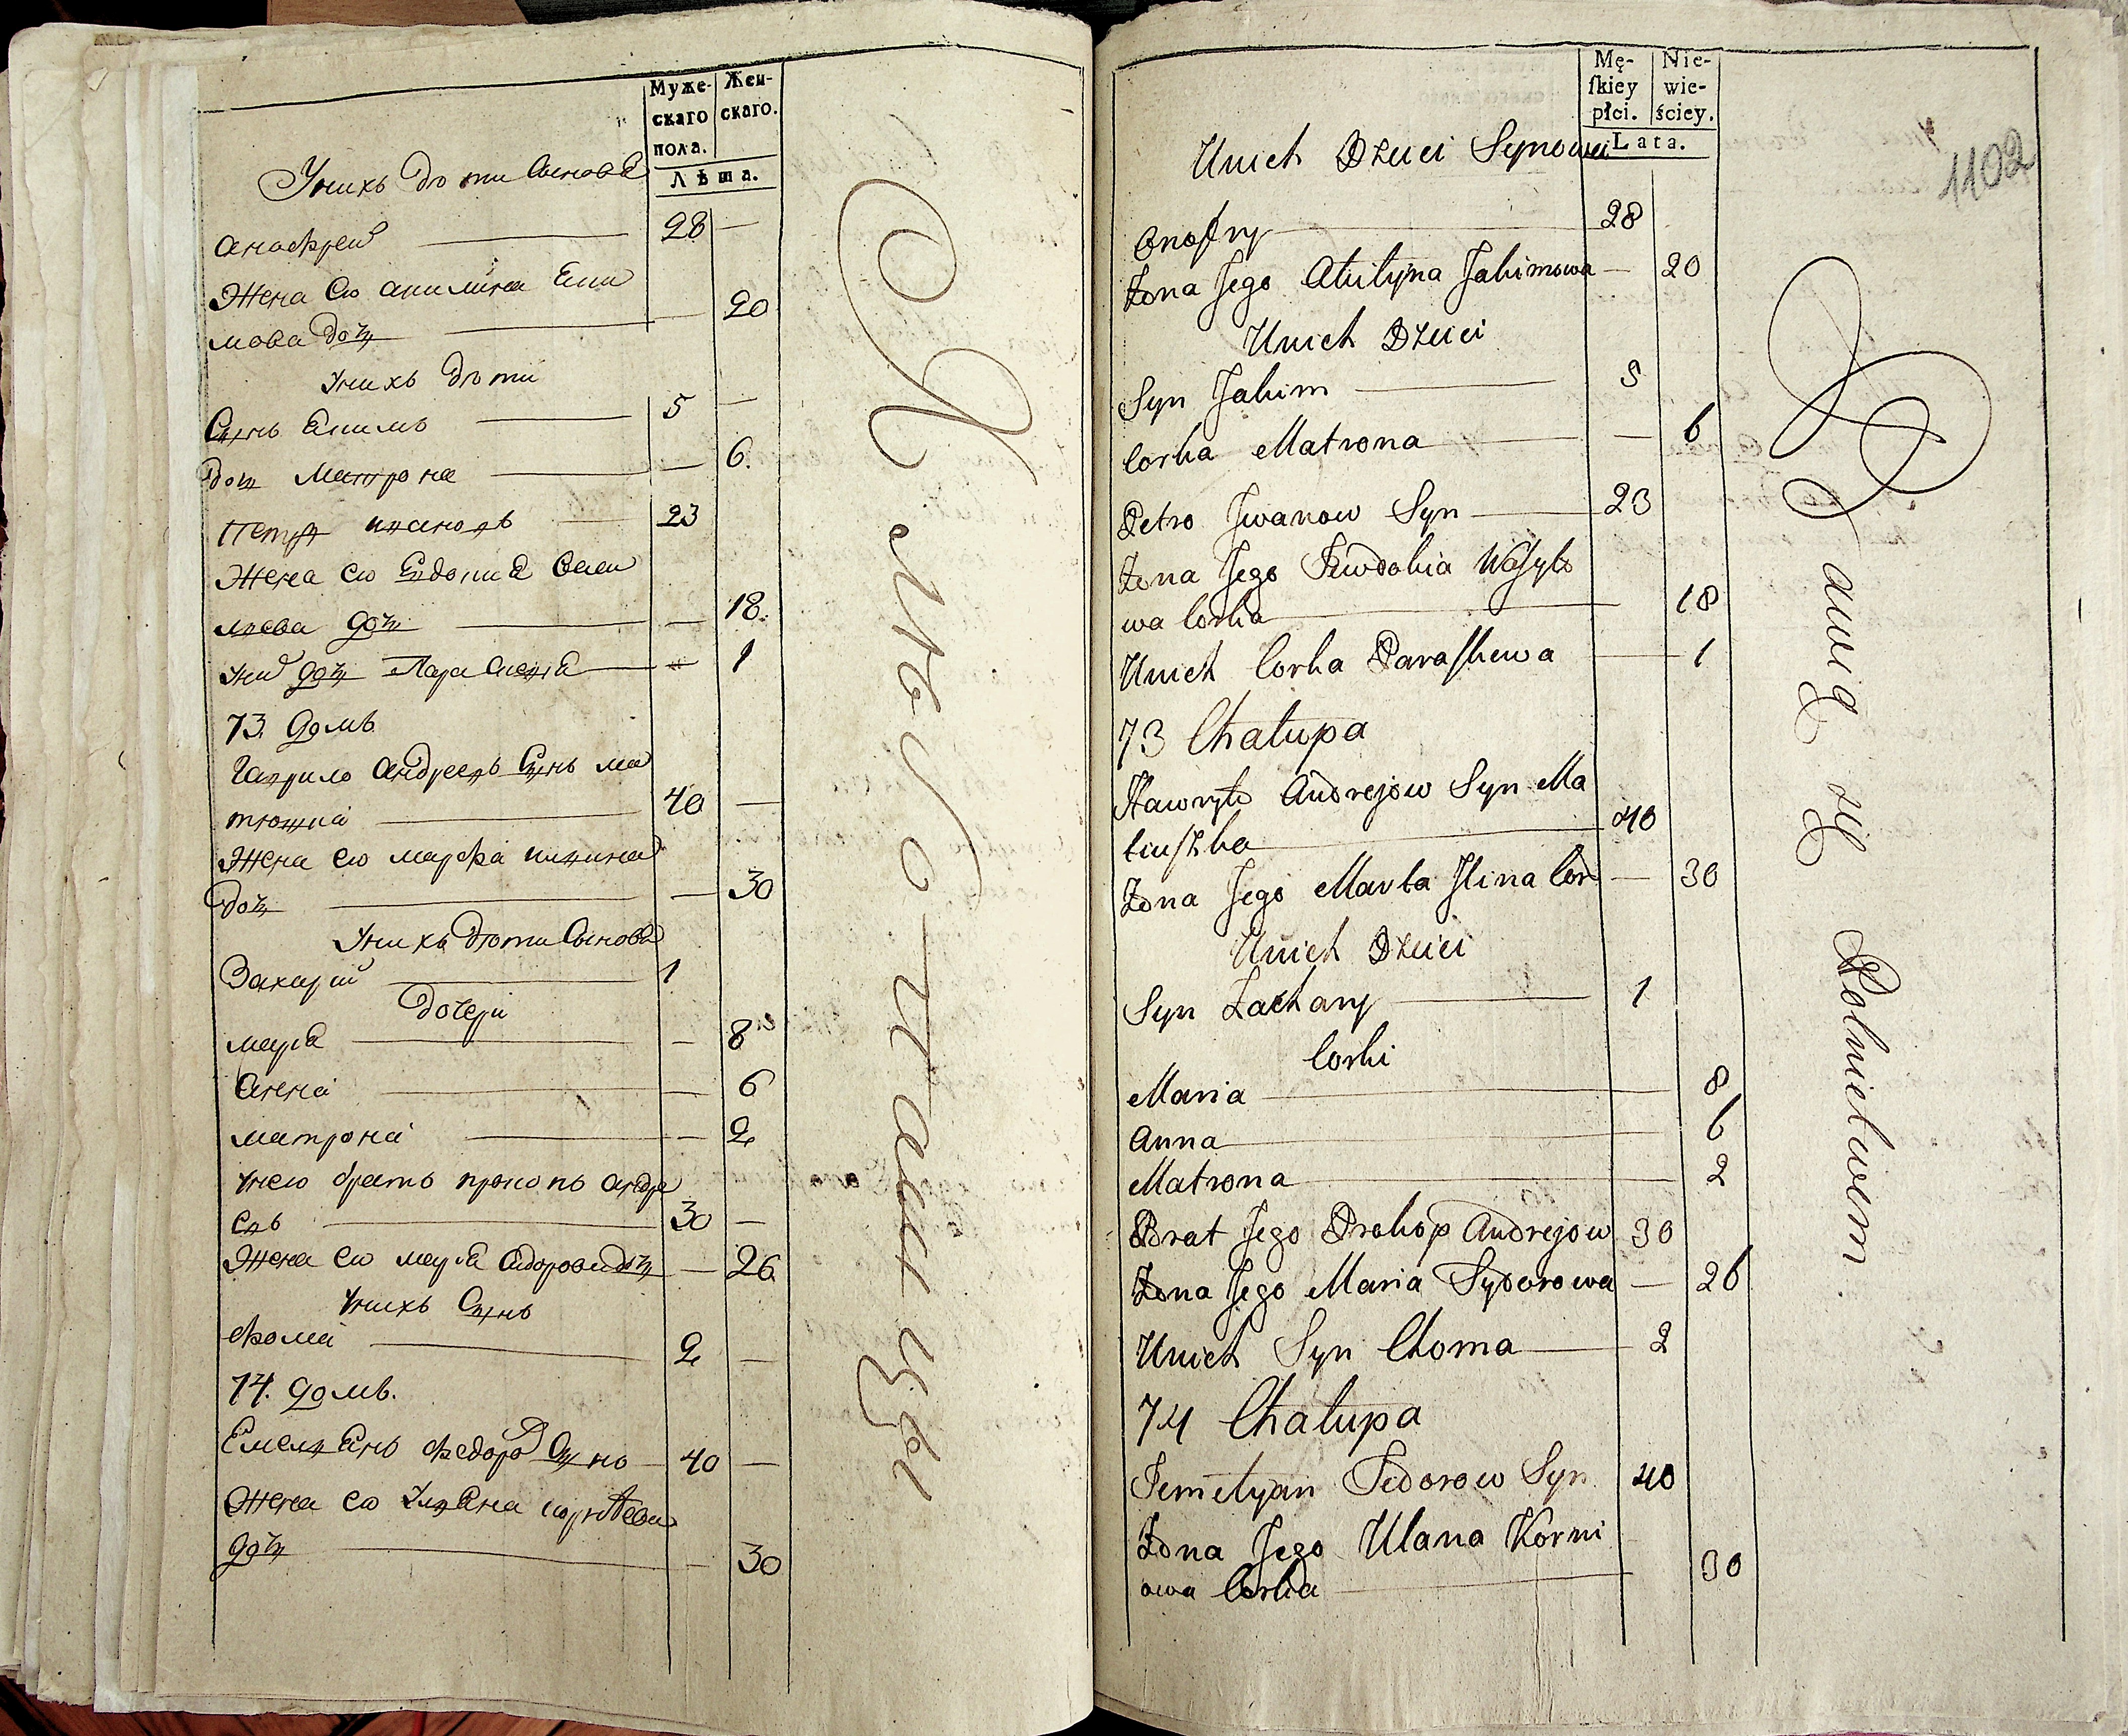 Муже-
скаго
пола.
Жен-
скаго.
Лѣта.
Унихъ дѣти Сынове
Анофрей 28 —
Жена Его Акилина Еки
мова дочь — 20
Унихъ дѣти
Сынъ Екимъ 5 —
дочь Матрона — 6.
Петръ Ивановъ 23
Жена Его Евдокия Васи
лиева дочь — 18.
Уних дочь Параскевия — 1
73. домъ
Гаврило Андреевъ Сынъ Ма
тюшка 40 —
Жена Его Марфа Илина
дочь — 30
Унихъ дѣти Сынове
Захарий 1
дочери
Мария — 8
Анна — 6
Матрона — 2
Унего братъ Прокопъ Андре
евъ 30 —
Жена Его Мария Сидорова дочь — 26
Унихъ Сынъ
Фома 2 —
74. домъ.
Емелиянъ Федоров Сынъ 40 —
Жена Его Улияна Корнѣева
дочь — 30
Хлѣбопашцы
Mę-
skiey
płci.
Nie-
wie-
ściey.
Lata.
1102
Unich Dzieci Synowie
Onofry 28
Żona Jego Akilyna Jakimowa — 20
Unich Dzieci
Syn Jakim 5
Corka Matrona — 6
Petro Jwanow Syn 23
Żona Jego Jewdokia Wasylo
wa Corka 18
Unich Corka Paraskewa 1
73 Chałupa
Hawryło Andrejow Syn Ma
tiuszka 40
Żona Jego Marta Jlina Cor — 30
Unich Dzieci
Syn Zachary 1
Corki
Maria 8
Anna 6
Matrona 2
Brat Jego Prokop Andrejow 30
Żona Jego Maria Sydorowa — 26
Unich Syn Choma 2
74 Chałupa
Jemelyan Fedorow Syn 40
Żona Jego Ulana Korni
owa Corka 30
Bawią się Rolnictwem.